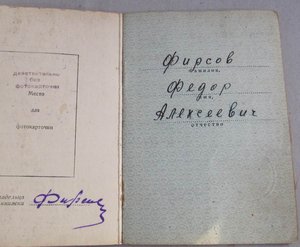 действительно
без
фотокарточки
Место
для
фотокарточки
владельца
книжки
Фирсов
Фамилия
Федор
имя,
Алексеевич
отчество